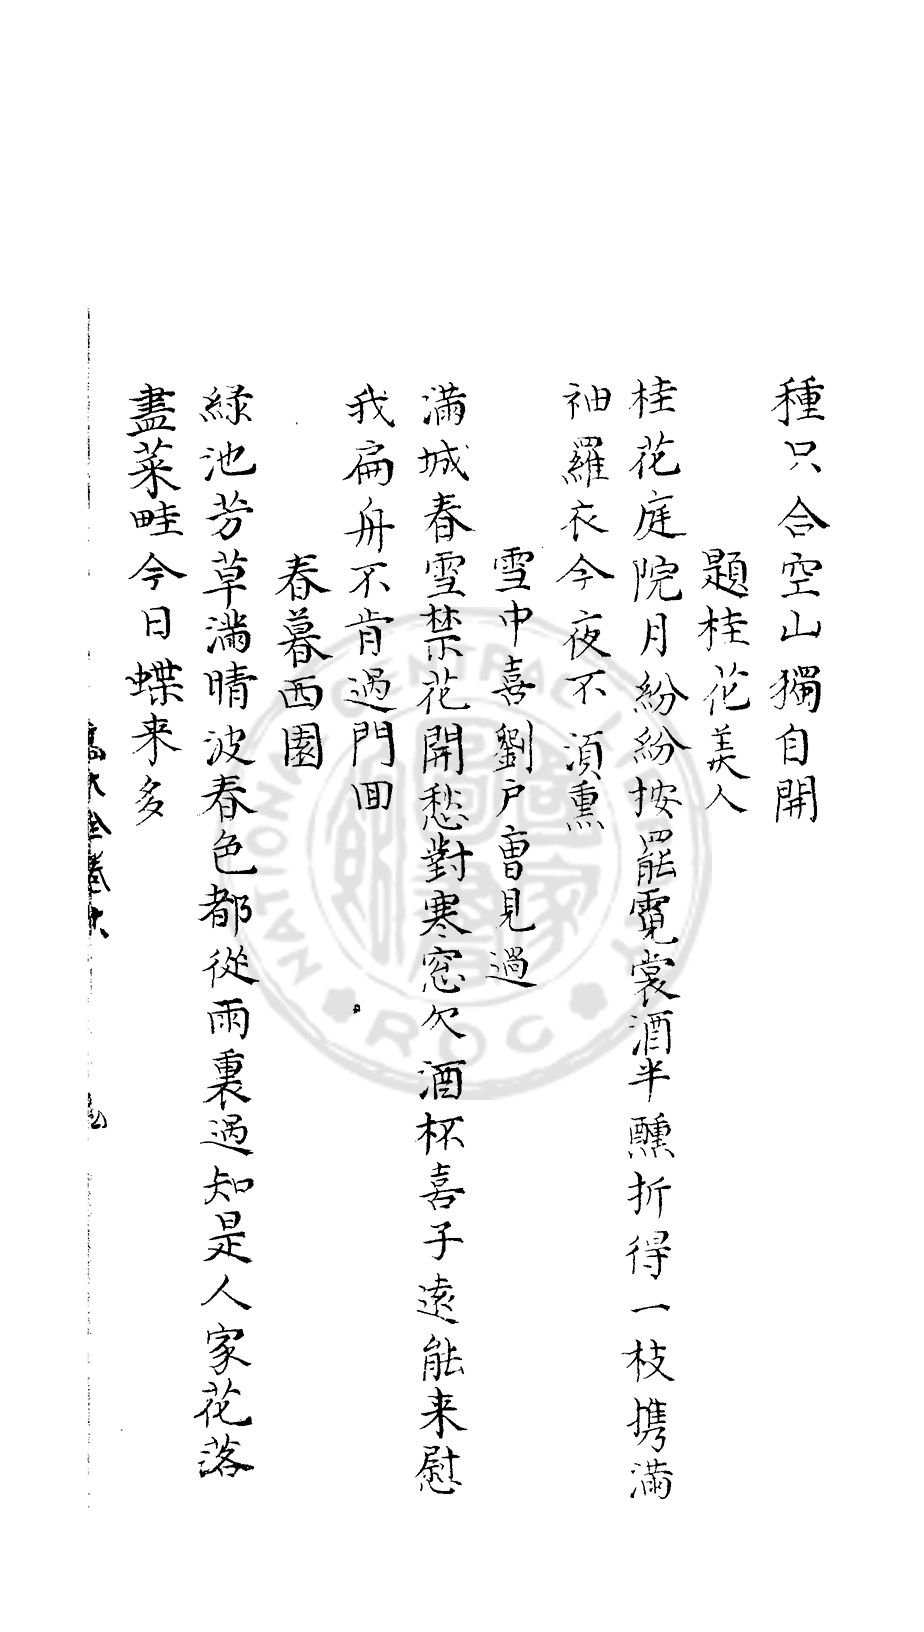 種只合空山獨自開
題桂花美人
桂花庭院月紛紛按罷霓裳酒半醺折得一枝携滿
袖羅衣今夜不湏熏
雪中喜劉戶曹見過
滿城春雪禁花開愁對寒窓欠酒杯喜子遠能来慰
我扁舟不肯過門回
春暮西園
綠池芳草滿晴波春色都從雨裏過知是人家花落
盡菜畦今日蝶来多
NATIONAL CENTRAL LIBRARY
ROC